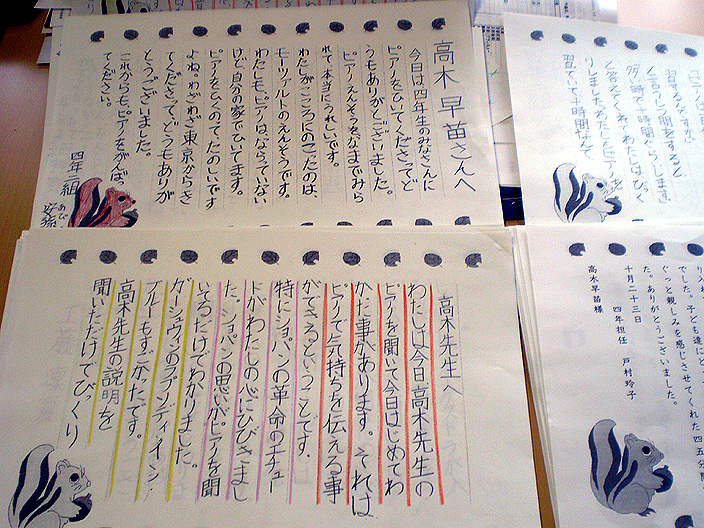 高木早苗さんへ
今日は四年生のみなさんに
ピアノをひいてくださって、ど
うもありがとうございました。
ピアノえんそうをなまでみら
れて、本当にうれしいです。
わたしがこころにのこったのは、
モーツァルトのえんそうです。
わたしも、ピアノは、ならっていない
けど自分の家でひいてます。
ピアノをひくのってたのしいです
よね。わざわざ東京からき
てくださって、どうもありが
とうございました。
これからも、ピアノをがんば
てください。
四年 組
と言うしつ問をすると
時で十時間ぐらいします
と答えてくれてわたしはびっく
りしました。わたしもピアノを
習ていて十時間なんて
高木先生へ
わたしは今日、高木先生の
ピアノを聞いて今日はじめてわ
かた事があります。それは
ピアノで気持ちを伝える事
ができる。ということです。
特にショパンの革命のエチュー
ドがわたしの心にひびきまし
た。ショパンの思いがピアノを聞
いてるだけでわかりました。
ガーシュウィンのラプソンディ・イン・
ブルーもすごかったです。
高木先生の説明を
聞いただけでびっくり
でした。子ども達に
ぐっと親しみを感じさせてくれた四五分間
た。ありがとうございました。
十月二十三日
四年担任 戸村玲子
高木早苗様